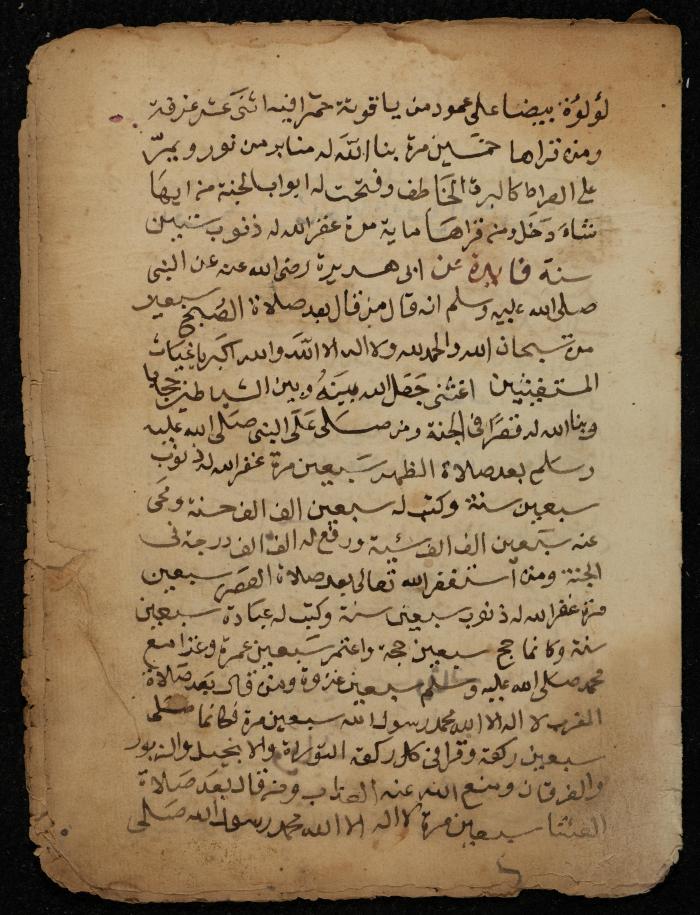 لؤلؤة بيضا على عمود من ياقوتة حمرا فيه اثنى عشر غرفة
ومن قراها خمسين مرة بنا الله له منابر من نور ويمرّ
على الصراط كالبرق الخاطف وفتحت له ابواب الجنة من ايها
شاء دخل ومن قراها ماية مرة غفر الله له ذنوب ستين
سنة فايدة عن ابى هريرة رضى الله عنه عن النبى
صلى الله عليه وسلم انه قال من قال بعد صلاة الصبح سبعين
مرة سبحان الله والحمد لله ولا اله الا الله والله اكبر ياغياث
المستغيثين اغثنى جعل الله بينه وبين الشياطين حجابا
وبنا الله له قصرا فى الجنة ومن صلى على النبى صلى الله عليه
وسلم بعد صلاة الظهر سبعين مرة غفر الله له ذنوب
سبعين سنة وكتب له سبعين الف الف حسنة ومحى
عنه سبعين الف الف سيئة ورفع له الف الف درجة فى
الجنة ومن استغفر الله تعالى بعد صلاة العصر سبعين
مرة غفر الله له ذنوب سبعين سنة وكتب له عبادة سبعين
سنة وكانما حج سبعين حجة واعتمر سبعين عمرة وغزا مع
محمد صلى الله عليه وسلم سبعين غزوة ومن قال بعد صلاة
المغرب لا اله الا الله محمد رسول الله سبعين مرة فكانما صلى
سبعين ركعة وقرا فى كل ركعة التوراة والانجيل والزبور
والفرقان ومنع الله عنه العذاب ومن قال بعد صلاة
العشا سبعين مرة لا اله الا الله محمد رسول الله صلى